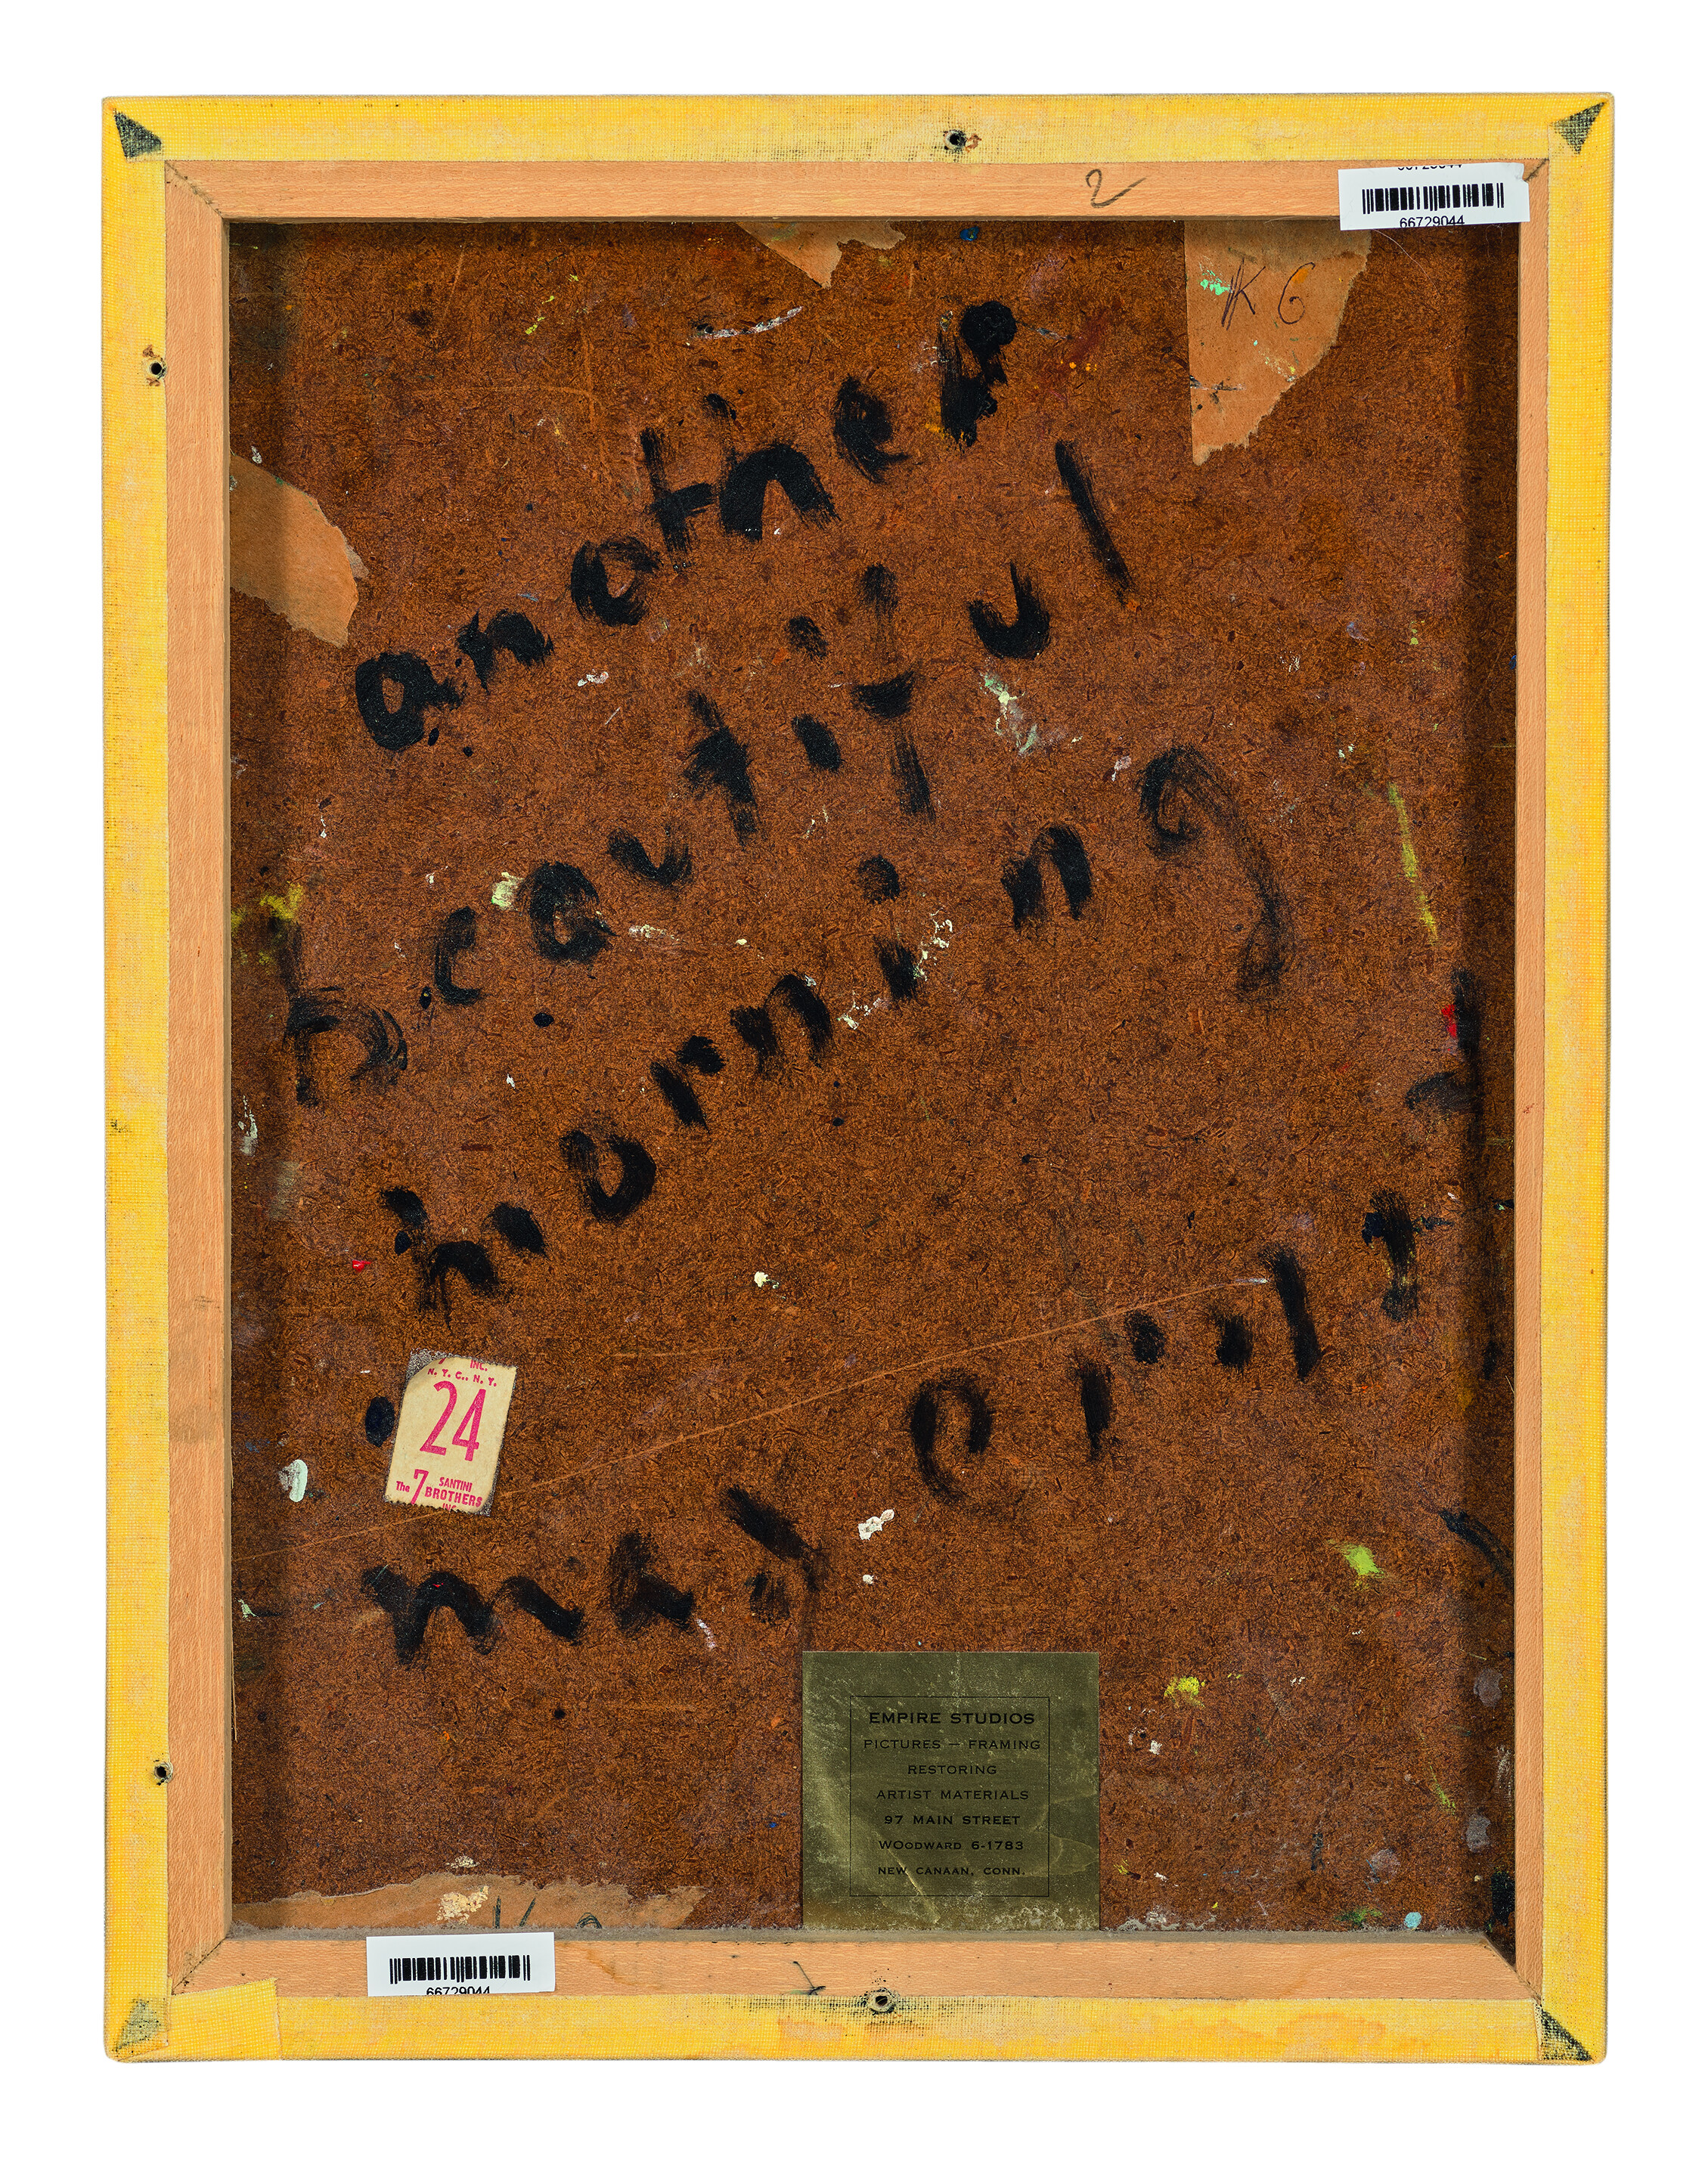 2
66729044
66729044
K 6
another
beautiful
morning
may april
INC.
N. Y. C., N. Y.
24
The 7 SANTINI
BROTHERS
INC.
EMPIRE STUDIOS
PICTURES — FRAMING
RESTORING
ARTIST MATERIALS
97 MAIN STREET
WOODWARD 6-1783
NEW CANAAN, CONN.
66729044